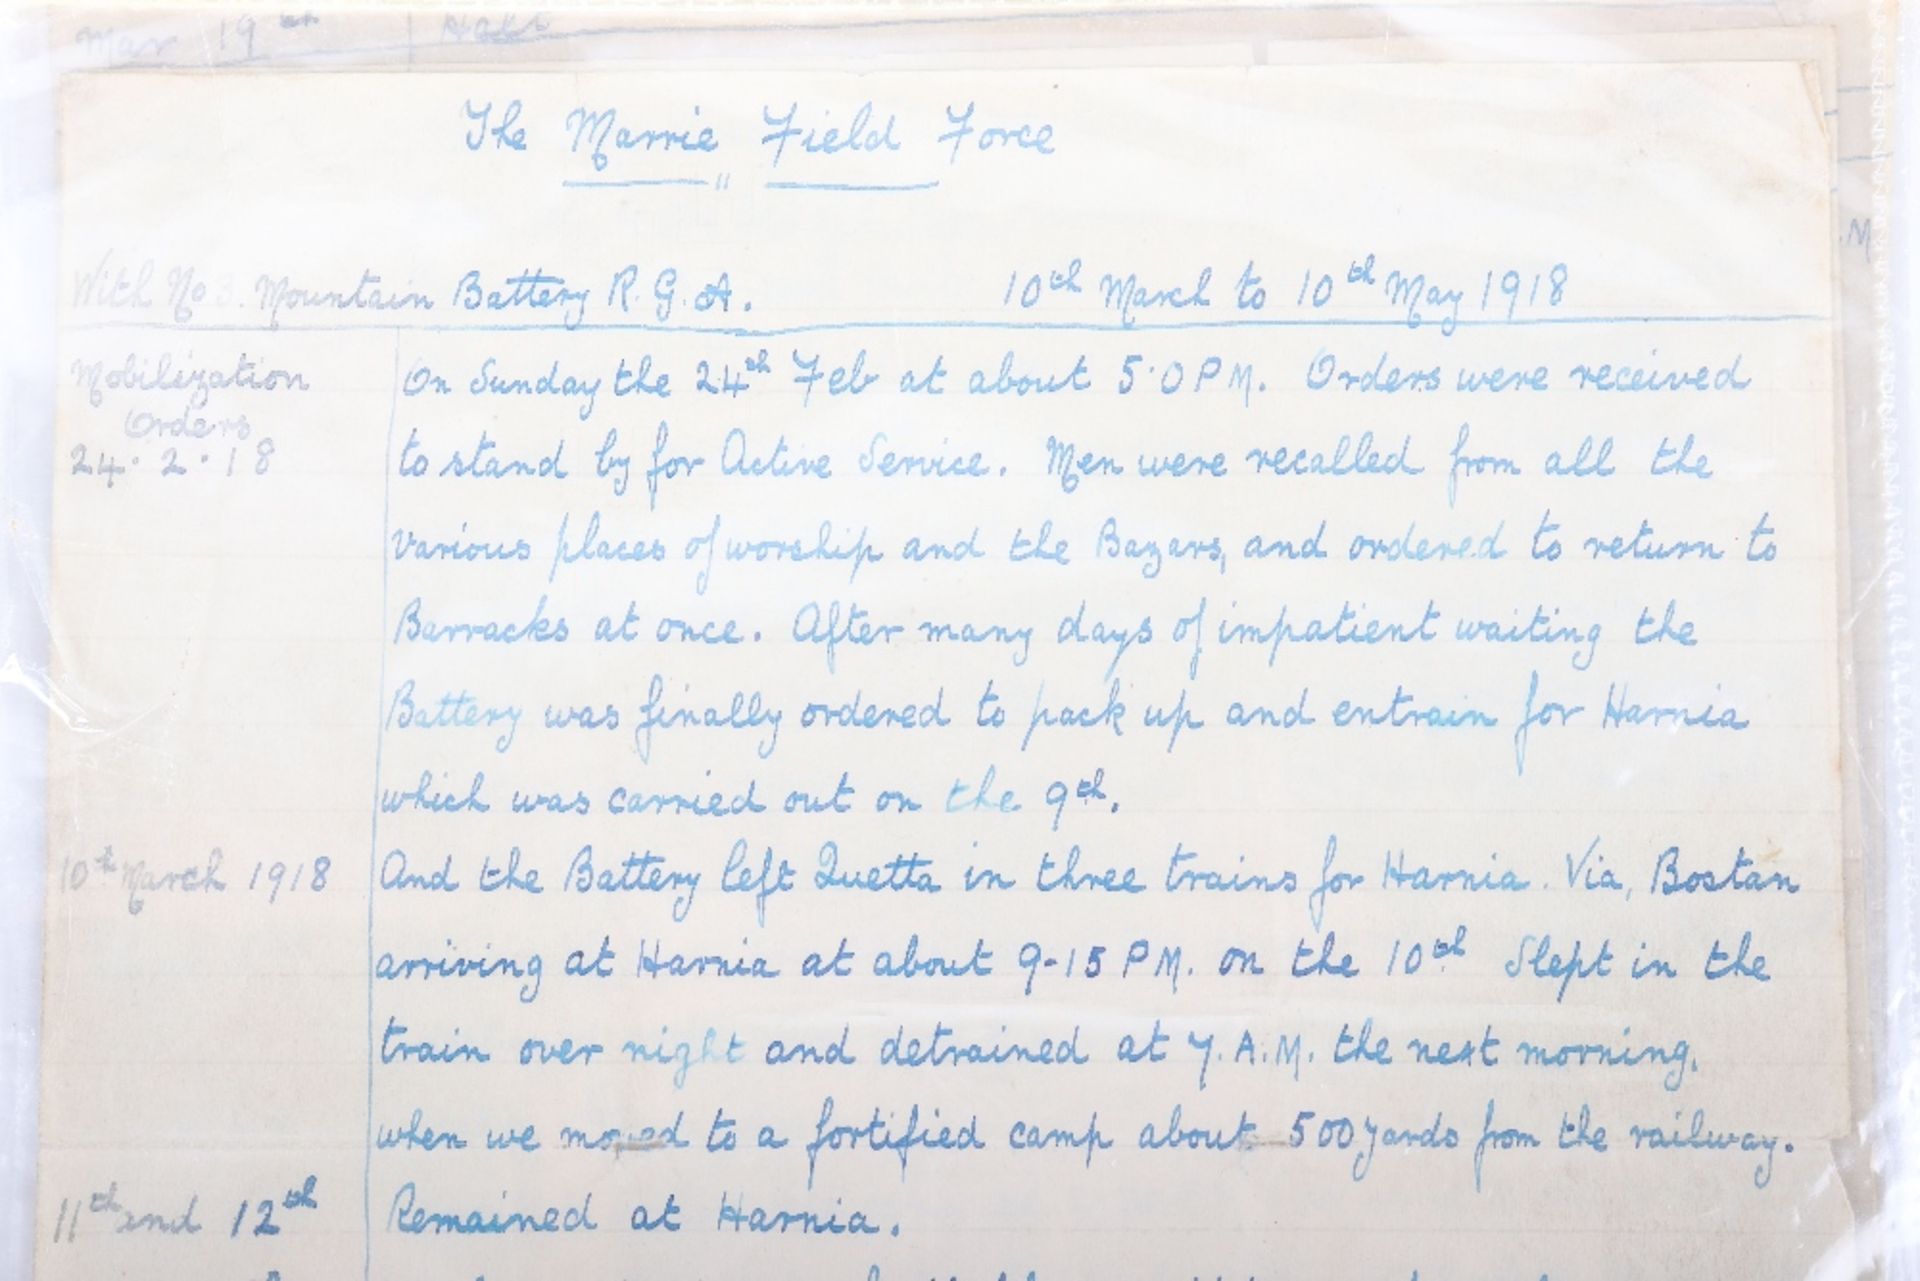 Mar 19th Halt
The Marrie Field Force
With No 3. Mountain Battery R.G.A. 10th March to 10th May 1918
Mobilization
Orders
24.2.18
On Sunday the 24th Feb at about 5.0 PM. Orders were received
to stand by for Active Service. Men were recalled from all the
various places of worship and the Bazars, and ordered to return to
Barracks at once. After many days of impatient waiting the
Battery was finally ordered to pack up and entrain for Harnia
which was carried out on the 9th.
10th March 1918
And the Battery left Quetta in three trains for Harnia. Via, Bostan
arriving at Harnia at about 9-15 PM. on the 10th Slept in the
train over night and detrained at 7. A.M. the next morning,
when we moved to a fortified camp about 500 yards from the railway.
11th and 12th
Remained at Harnia.